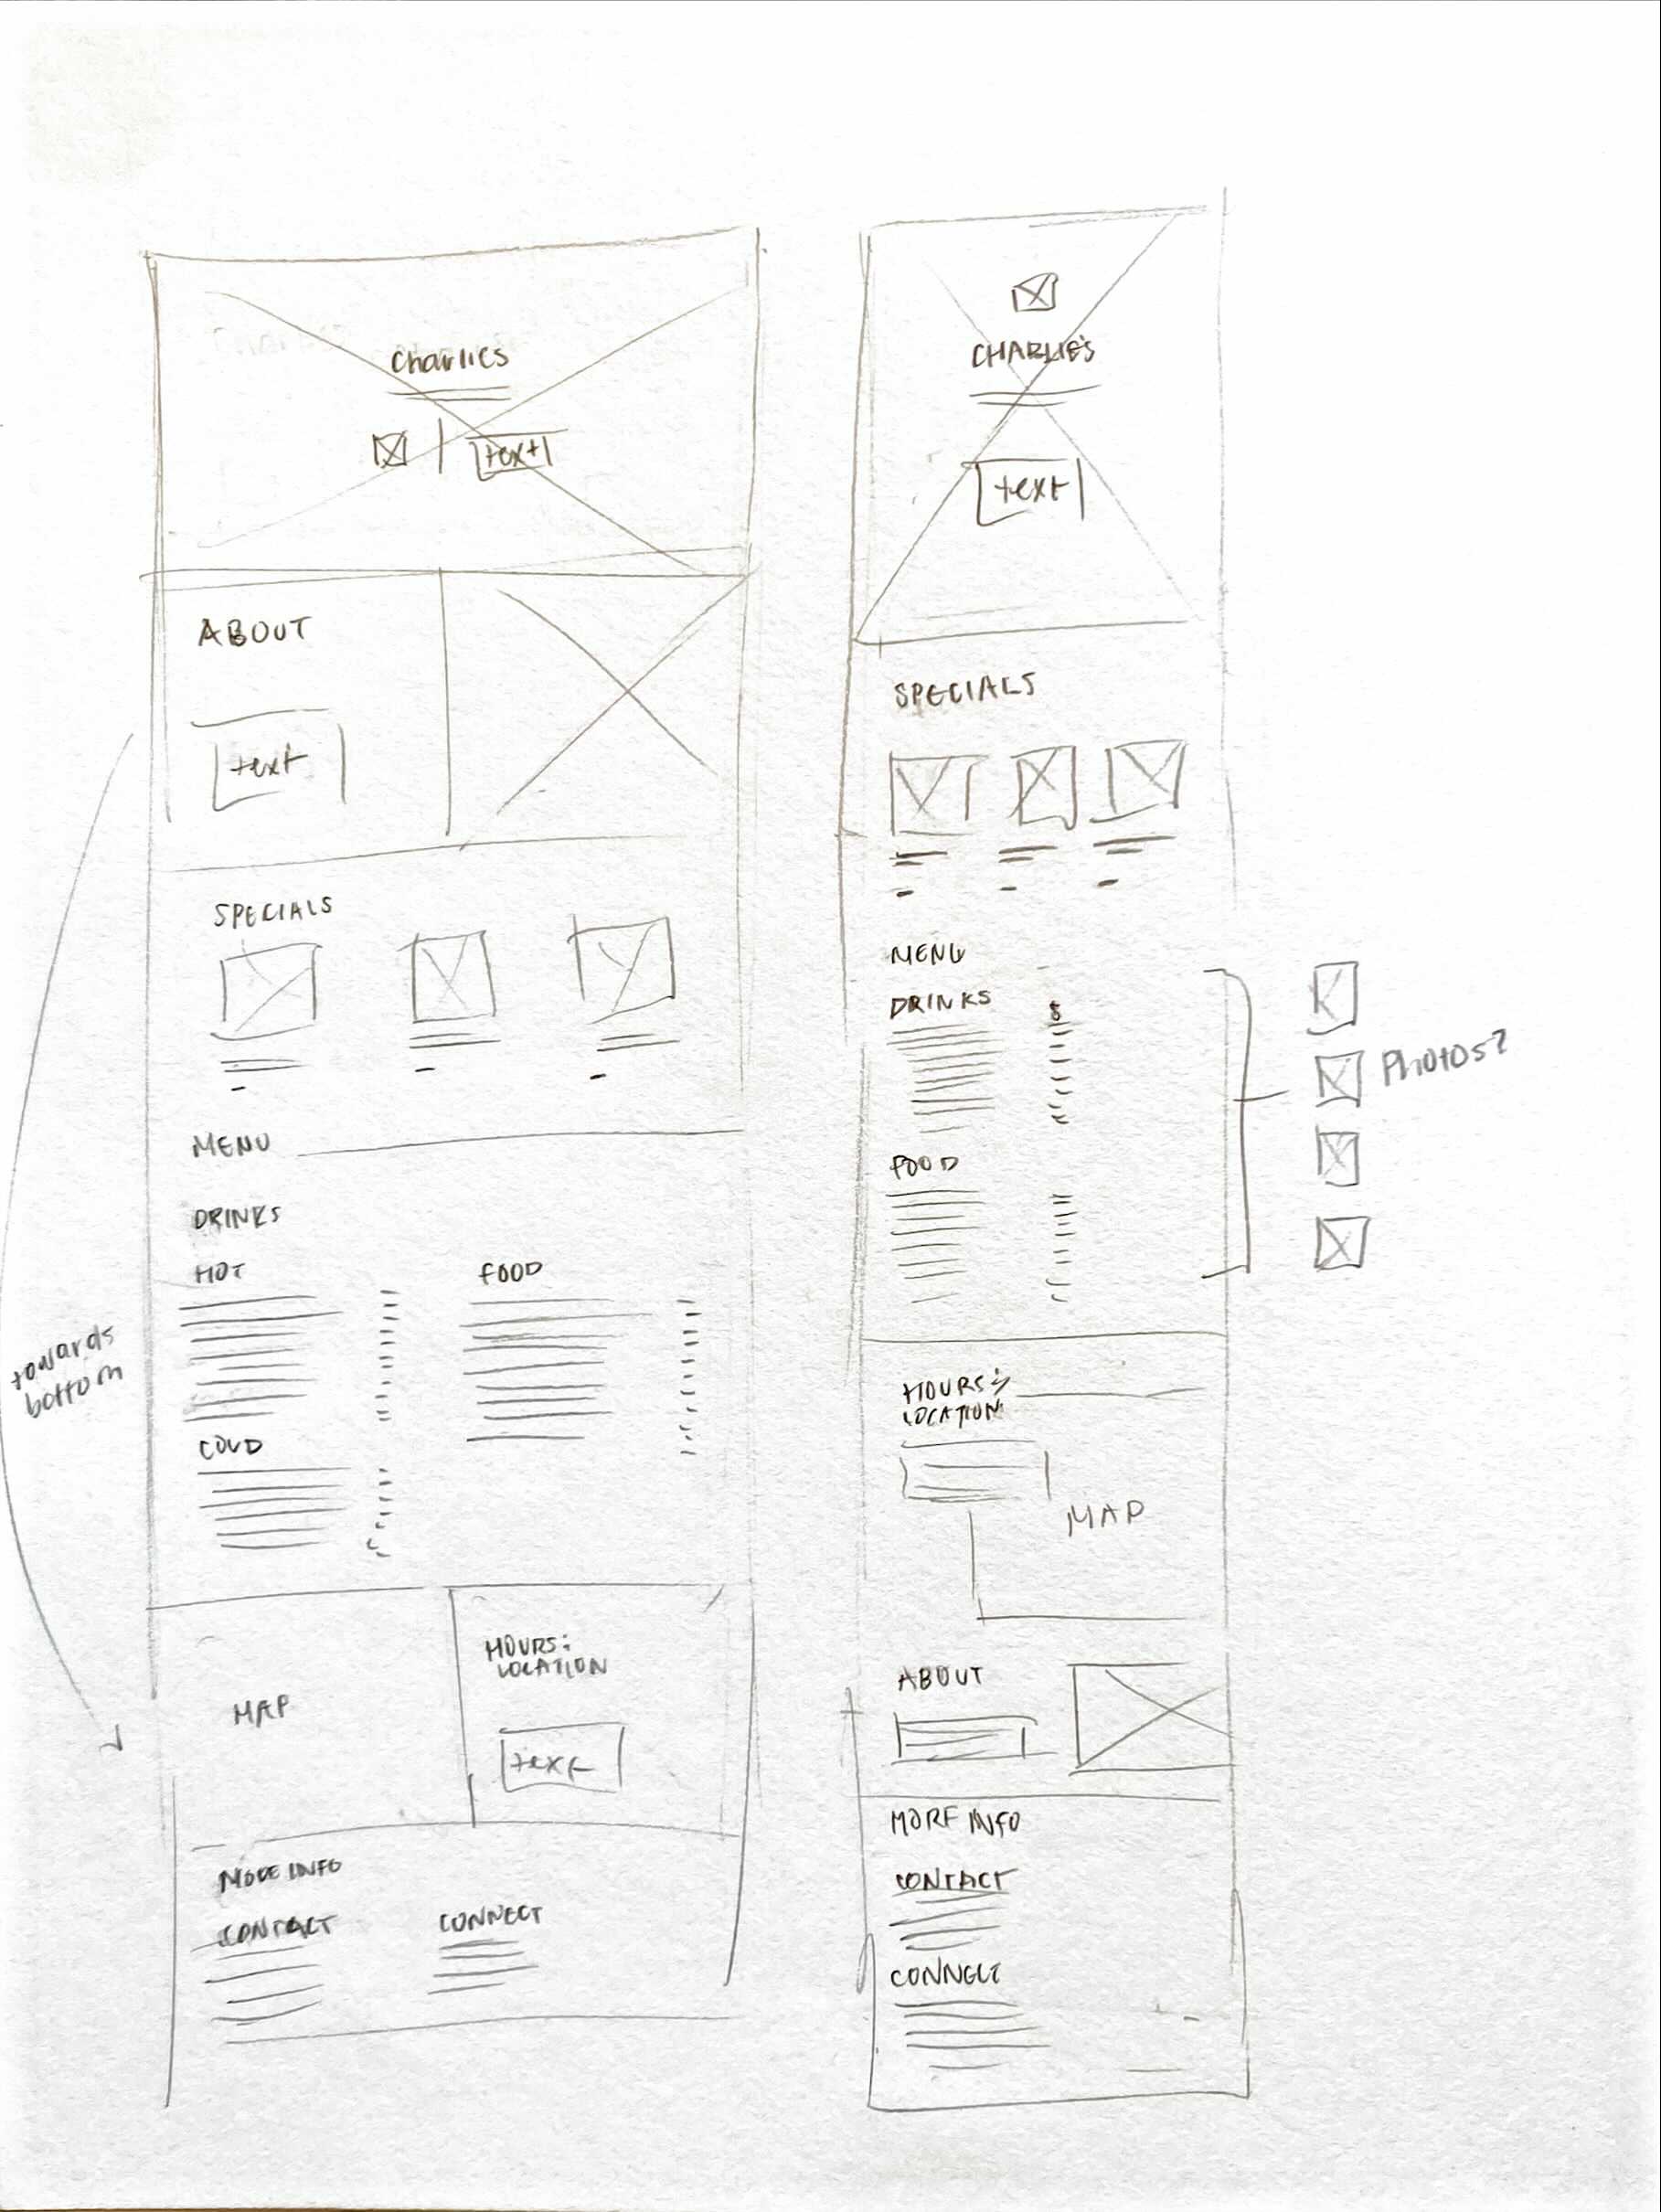 Charlies
text
ABOUT
text
SPECIALS
MENU
DRINKS
HOT
FOOD
COLD
MAP
HOURS:
LOCATION
text
MORE INFO
CONTACT
CONNECT
towards
bottom
CHARLIE'S
text
SPECIALS
MENU
DRINKS
$
FOOD
Photos?
HOURS:
LOCATION
MAP
ABOUT
MORE INFO
CONTACT
CONNECT